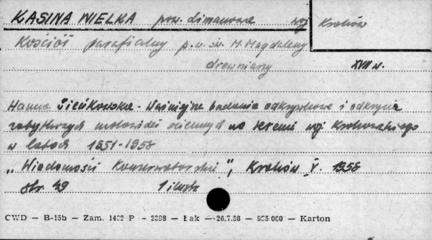 KASINA WIELKA pow. Limanowa woj Kraków
Kościół parafialny p.w. św. M. Magdaleny
drewniany XVII w.
Hanna Pieńkowska - Ważniejsze badania odkrywkowe i odkrycia
zabytkowych malowideł ściennych na terenie woj Krakowskiego
w latach 1951-1955
"Wiadomości Konserwatorskie", Kraków, 1955
str. 49 1 ilustr
CWD — B-15b — Zam. 1402 P — 2288 — Łak — 26.7.58 — 935 000 — Karton